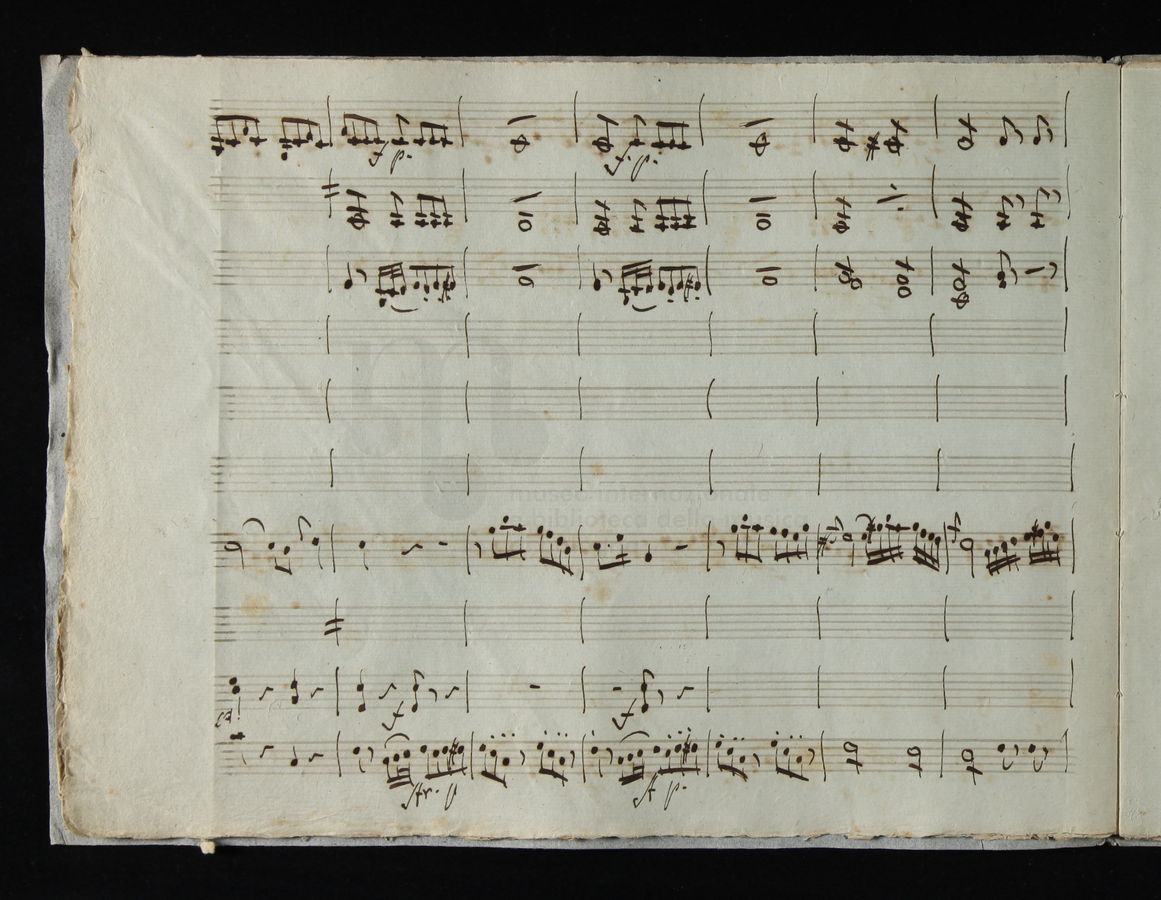 f. p.
f. p.
museo internazionale
biblioteca della musica
f
f
p
p.